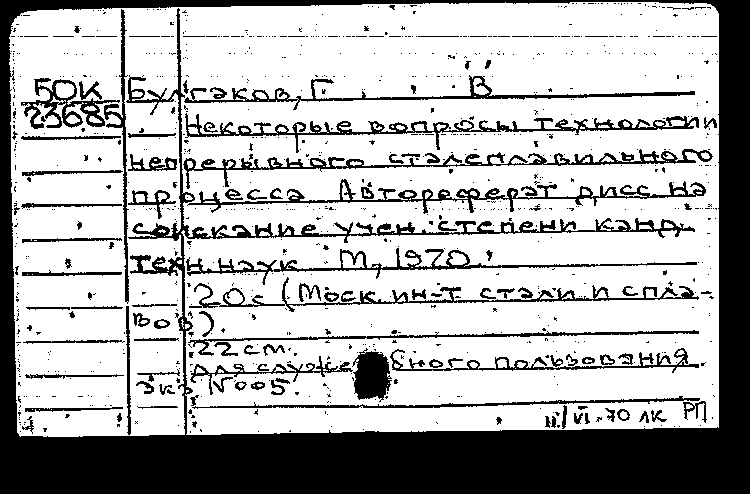 50к Булгаков, Г. В
23685 Некоторые вопросы технологии
непрерывного сталеплавильного
процесса Автореферат дисс. на
соискание учен. степени канд.
техн. наук М., 1970.
20с (Моск. ин-т стали и спла-
вов).
22 см.
Для служебного пользования
Экз N005.
11/VI-70 лк РП